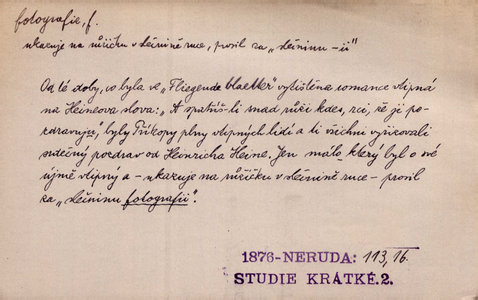 fotografie, f.
ukazuje na růžičku v slečnině ruce, prosil za „slečninu –ii"
Od té doby, co byla ve „Fliegende blaetter" vytištěna romance vtipná
na Heineova slova: „A spatříš-li snad růži kdes, rci, že ji po-
zdravuju", byly Příkopy plny vtipných lidí a ti všichni vyřizovali
srdečný pozdrav od Heinricha Heine. Jen málo který byl o své
újmě vtipný a – ukazuje na růžičku v slečnině ruce – prosil
za „slečninu fotografii".
1876-NERUDA: 113, 16
STUDIE KRÁTKÉ.2.